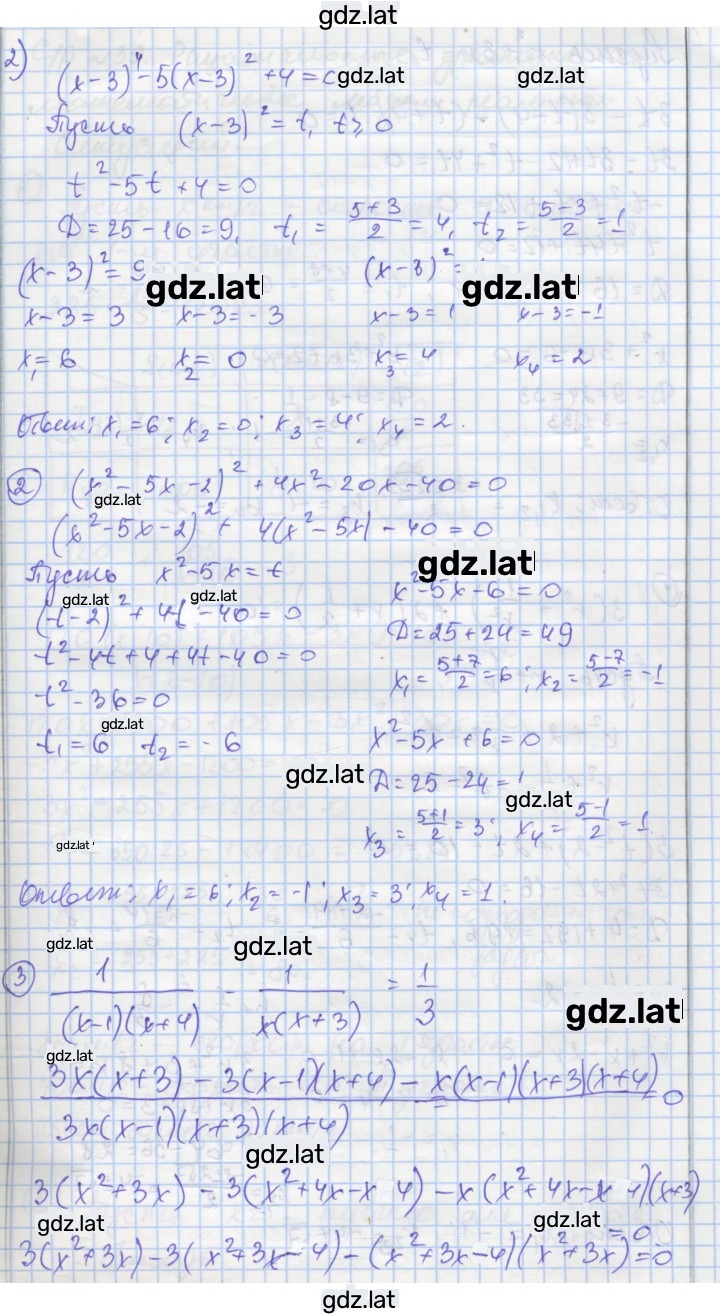 gdz.lat
2)
(x-3)⁴-5(x-3)²+4=0 gdz.lat gdz.lat
Пусть (x-3)²=t, t≥0
t²-5t+4=0
D=25-16=9, t₁=(5+3)/2=4, t₂=(5-3)/2=1
(x-3)²=9 (x-3)²=
gdz.lat gdz.lat
x-3=3 x-3=-3 x-3=1 x-3=-1
x₁=6 x₂=0 x₃=4 x₄=2
Ответ: x₁=6; x₂=0; x₃=4; x₄=2.
② (x²-5x-2)²+4x²-20x-40=0
gdz.lat
(x²-5x-2)²+4(x²-5x)-40=0
Пусть x²-5x=t
gdz.lat
gdz.lat gdz.lat
(t-2)²+4t-40=0
t²-4t+4+4t-40=0
t²-36=0
gdz.lat
t₁=6 t₂=-6
x²-5x-6=0
D=25+24=49
x₁=(5+7)/2=6; x₂=(5-7)/2=-1
x²-5x+6=0
gdz.lat
D=25-24=1
gdz.lat
x₃=(5+1)/2=3; x₄=(5-1)/2=1
gdz.lat
Ответ: x₁=6; x₂=-1; x₃=3; x₄=1.
gdz.lat gdz.lat
③ 1/((x-1)(x+4)) - 1/(x(x+3)) = 1/3
gdz.lat
gdz.lat
(3x(x+3)-3(x-1)(x+4)-x(x-1)(x+3)(x+4))/(3x(x-1)(x+3)(x+4))=0
gdz.lat
3(x²+3x)-3(x²+4x-x 4)-x(x²+4x-x 4)(x+3)=0
gdz.lat gdz.lat
3(x²+3x)-3(x²+3x-4)-(x²+3x-4)(x²+3x)=0
gdz.lat